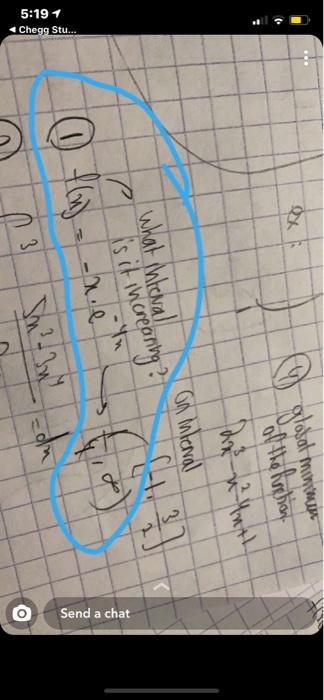 5:19
Chegg Stu...
ex:
④ global minimum
of the function
2x³-x²-4x+1
on interval
[-1, 3/2]
what interval
is it increasing?
① f(x) = -x·e^-4x → (1/4, ∞)
∫
3
5x³-3x⁴
= dx
Send a chat